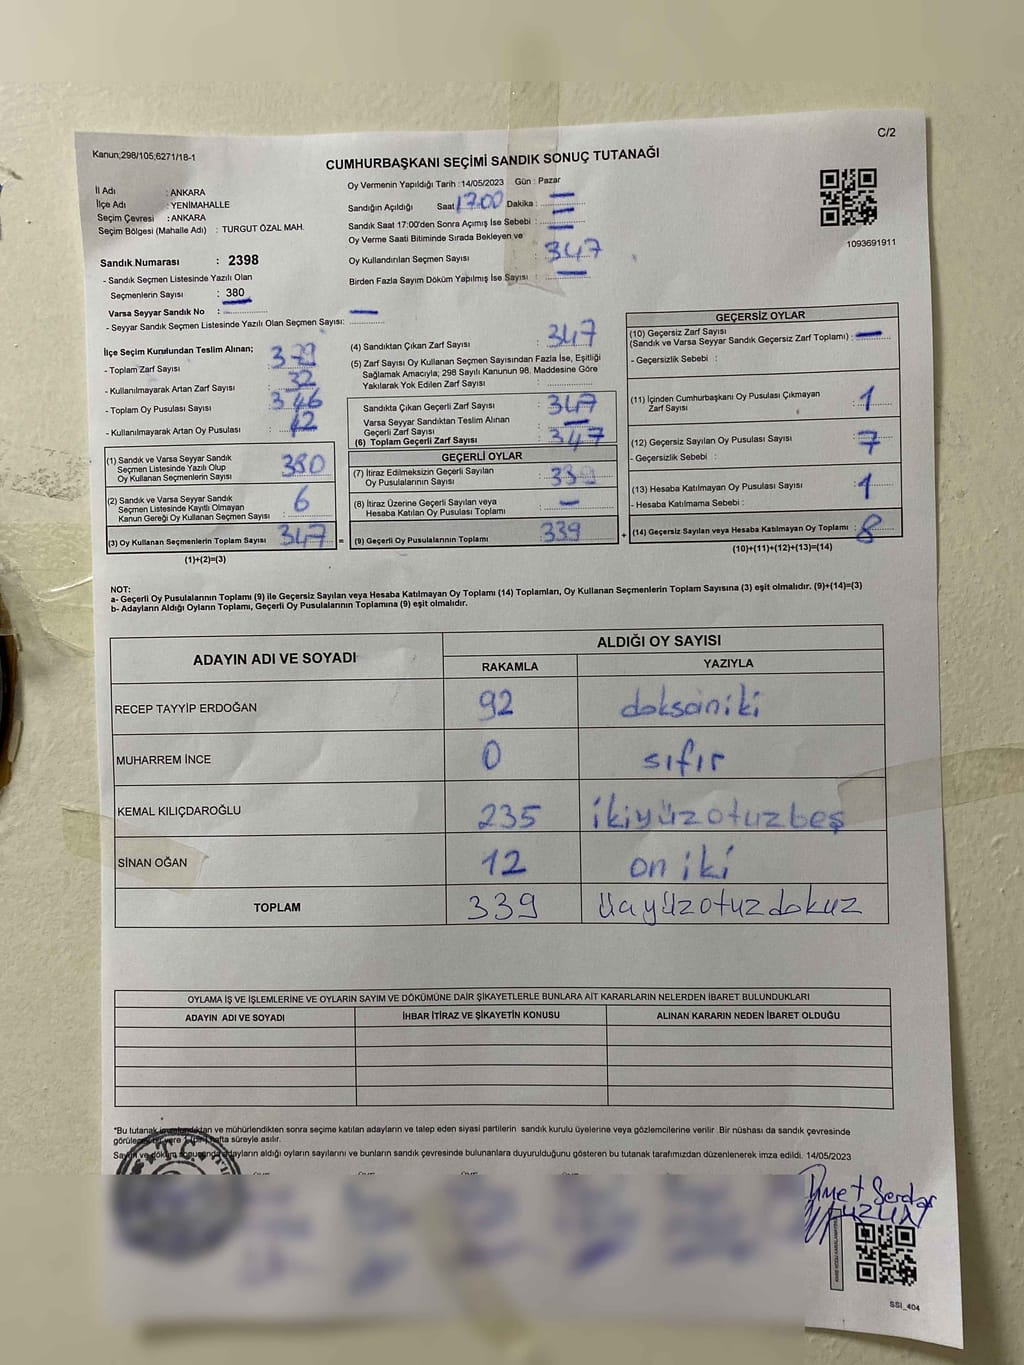 C/2
Kanun;298/105;6271/18-1
CUMHURBAŞKANI SEÇİMİ SANDIK SONUÇ TUTANAĞI
İl Adı : ANKARA
İlçe Adı : YENİMAHALLE
Seçim Çevresi : ANKARA
Seçim Bölgesi (Mahalle Adı) : TURGUT ÖZAL MAH.
Oy Vermenin Yapıldığı Tarih :14/05/2023 Gün : Pazar
Sandığın Açıldığı Saat 17:00 Dakika : —
Sandık Saat 17:00'den Sonra Açımış İse Sebebi : —
Oy Verme Saati Bitiminde Sırada Bekleyen ve : —
Oy Kullandırılan Seçmen Sayısı : 347
Birden Fazla Sayım Döküm Yapılmış İse Sayısı : —
1093691911
Sandık Numarası : 2398
- Sandık Seçmen Listesinde Yazılı Olan
Seçmenlerin Sayısı : 380
Varsa Seyyar Sandık No :
- Seyyar Sandık Seçmen Listesinde Yazılı Olan Seçmen Sayısı: —
İlçe Seçim Kurulundan Teslim Alınan;
- Toplam Zarf Sayısı :
- Kullanılmayarak Artan Zarf Sayısı : 32
- Toplam Oy Pusulası Sayısı : 346
- Kullanılmayarak Artan Oy Pusulası : 12
(1) Sandık ve Varsa Seyyar Sandık
Seçmen Listesinde Yazılı Olup
Oy Kullanan Seçmenlerin Sayısı : 380
(2) Sandık ve Varsa Seyyar Sandık
Seçmen Listesinde Kayıtlı Olmayan
Kanun Gereği Oy Kullanan Seçmen Sayısı : 6
(3) Oy Kullanan Seçmenlerin Toplam Sayısı : 347 =
(1)+(2)=(3)
(4) Sandıktan Çıkan Zarf Sayısı : 347
(5) Zarf Sayısı Oy Kullanan Seçmen Sayısından Fazla İse, Eşitliği
Sağlamak Amacıyla; 298 Sayılı Kanunun 98. Maddesine Göre
Yakılarak Yok Edilen Zarf Sayısı :
Sandıkta Çıkan Geçerli Zarf Sayısı : 347
Varsa Seyyar Sandıktan Teslim Alınan
Geçerli Zarf Sayısı : —
(6) Toplam Geçerli Zarf Sayısı : 347
GEÇERLİ OYLAR
(7) İtiraz Edilmeksizin Geçerli Sayılan
Oy Pusulalarının Sayısı : 339
(8) İtiraz Üzerine Geçerli Sayılan veya
Hesaba Katılan Oy Pusulası Toplamı : —
(9) Geçerli Oy Pusulalarının Toplamı : 339 +
GEÇERSİZ OYLAR
(10) Geçersiz Zarf Sayısı
(Sandık ve Varsa Seyyar Sandık Geçersiz Zarf Toplamı) : —
- Geçersizlik Sebebi :
(11) İçinden Cumhurbaşkanı Oy Pusulası Çıkmayan
Zarf Sayısı : 1
(12) Geçersiz Sayılan Oy Pusulası Sayısı : 7
- Geçersizlik Sebebi :
(13) Hesaba Katılmayan Oy Pusulası Sayısı : 1
- Hesaba Katılmama Sebebi :
(14) Geçersiz Sayılan veya Hesaba Katılmayan Oy Toplamı : 8
(10)+(11)+(12)+(13)=(14)
NOT:
a- Geçerli Oy Pusulalarının Toplamı (9) ile Geçersiz Sayılan veya Hesaba Katılmayan Oy Toplamı (14) Toplamları, Oy Kullanan Seçmenlerin Toplam Sayısına (3) eşit olmalıdır. (9)+(14)=(3)
b- Adayların Aldığı Oyların Toplamı, Geçerli Oy Pusulalarının Toplamına (9) eşit olmalıdır.
ADAYIN ADI VE SOYADI ALDIĞI OY SAYISI
RAKAMLA YAZIYLA
RECEP TAYYİP ERDOĞAN 92 doksaniki
MUHARREM İNCE 0 sıfır
KEMAL KILIÇDAROĞLU 235 ikiyüzotuzbeş
SİNAN OĞAN 12 on iki
TOPLAM 339 üçyüzotuzdokuz
OYLAMA İŞ VE İŞLEMLERİNE VE OYLARIN SAYIM VE DÖKÜMÜNE DAİR ŞİKAYETLERLE BUNLARA AİT KARARLARIN NELERDEN İBARET BULUNDUKLARI
ADAYIN ADI VE SOYADI İHBAR İTİRAZ VE ŞİKAYETİN KONUSU ALINAN KARARIN NEDEN İBARET OLDUĞU
*Bu tutanak ve mühürlendikten sonra seçime katılan adayların ve talep eden siyasi partilerin sandık kurulu üyelerine veya gözlemcilerine verilir. Bir nüshası da sandık çevresinde
yere hafta süreyle asılır.
adayların aldığı oyların sayılarını ve bunların sandık çevresinde bulunanlara duyurulduğunu gösteren bu tutanak tarafımızdan düzenlenerek imza edildi. 14/05/2023
Serdar
SSI_404